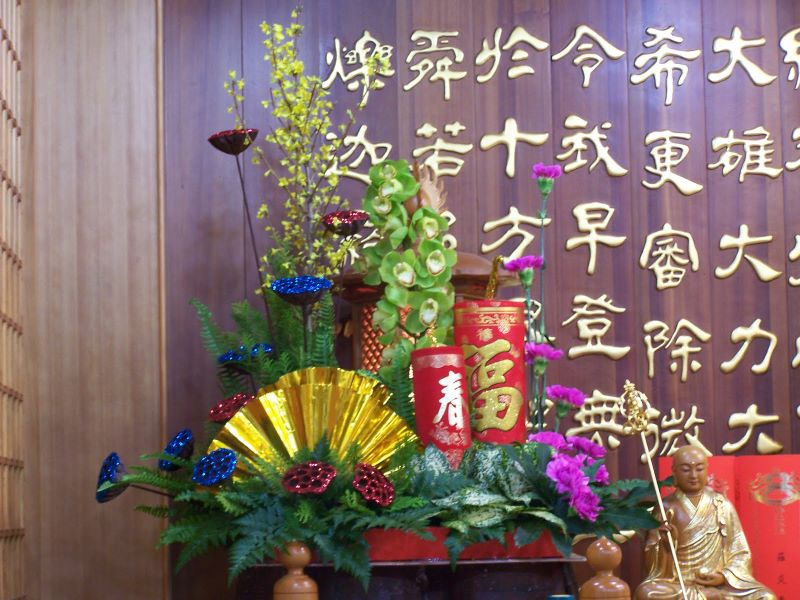 大雄大力大
希更審除微
令我早登無
於十方
舜若
爍迦
春
福